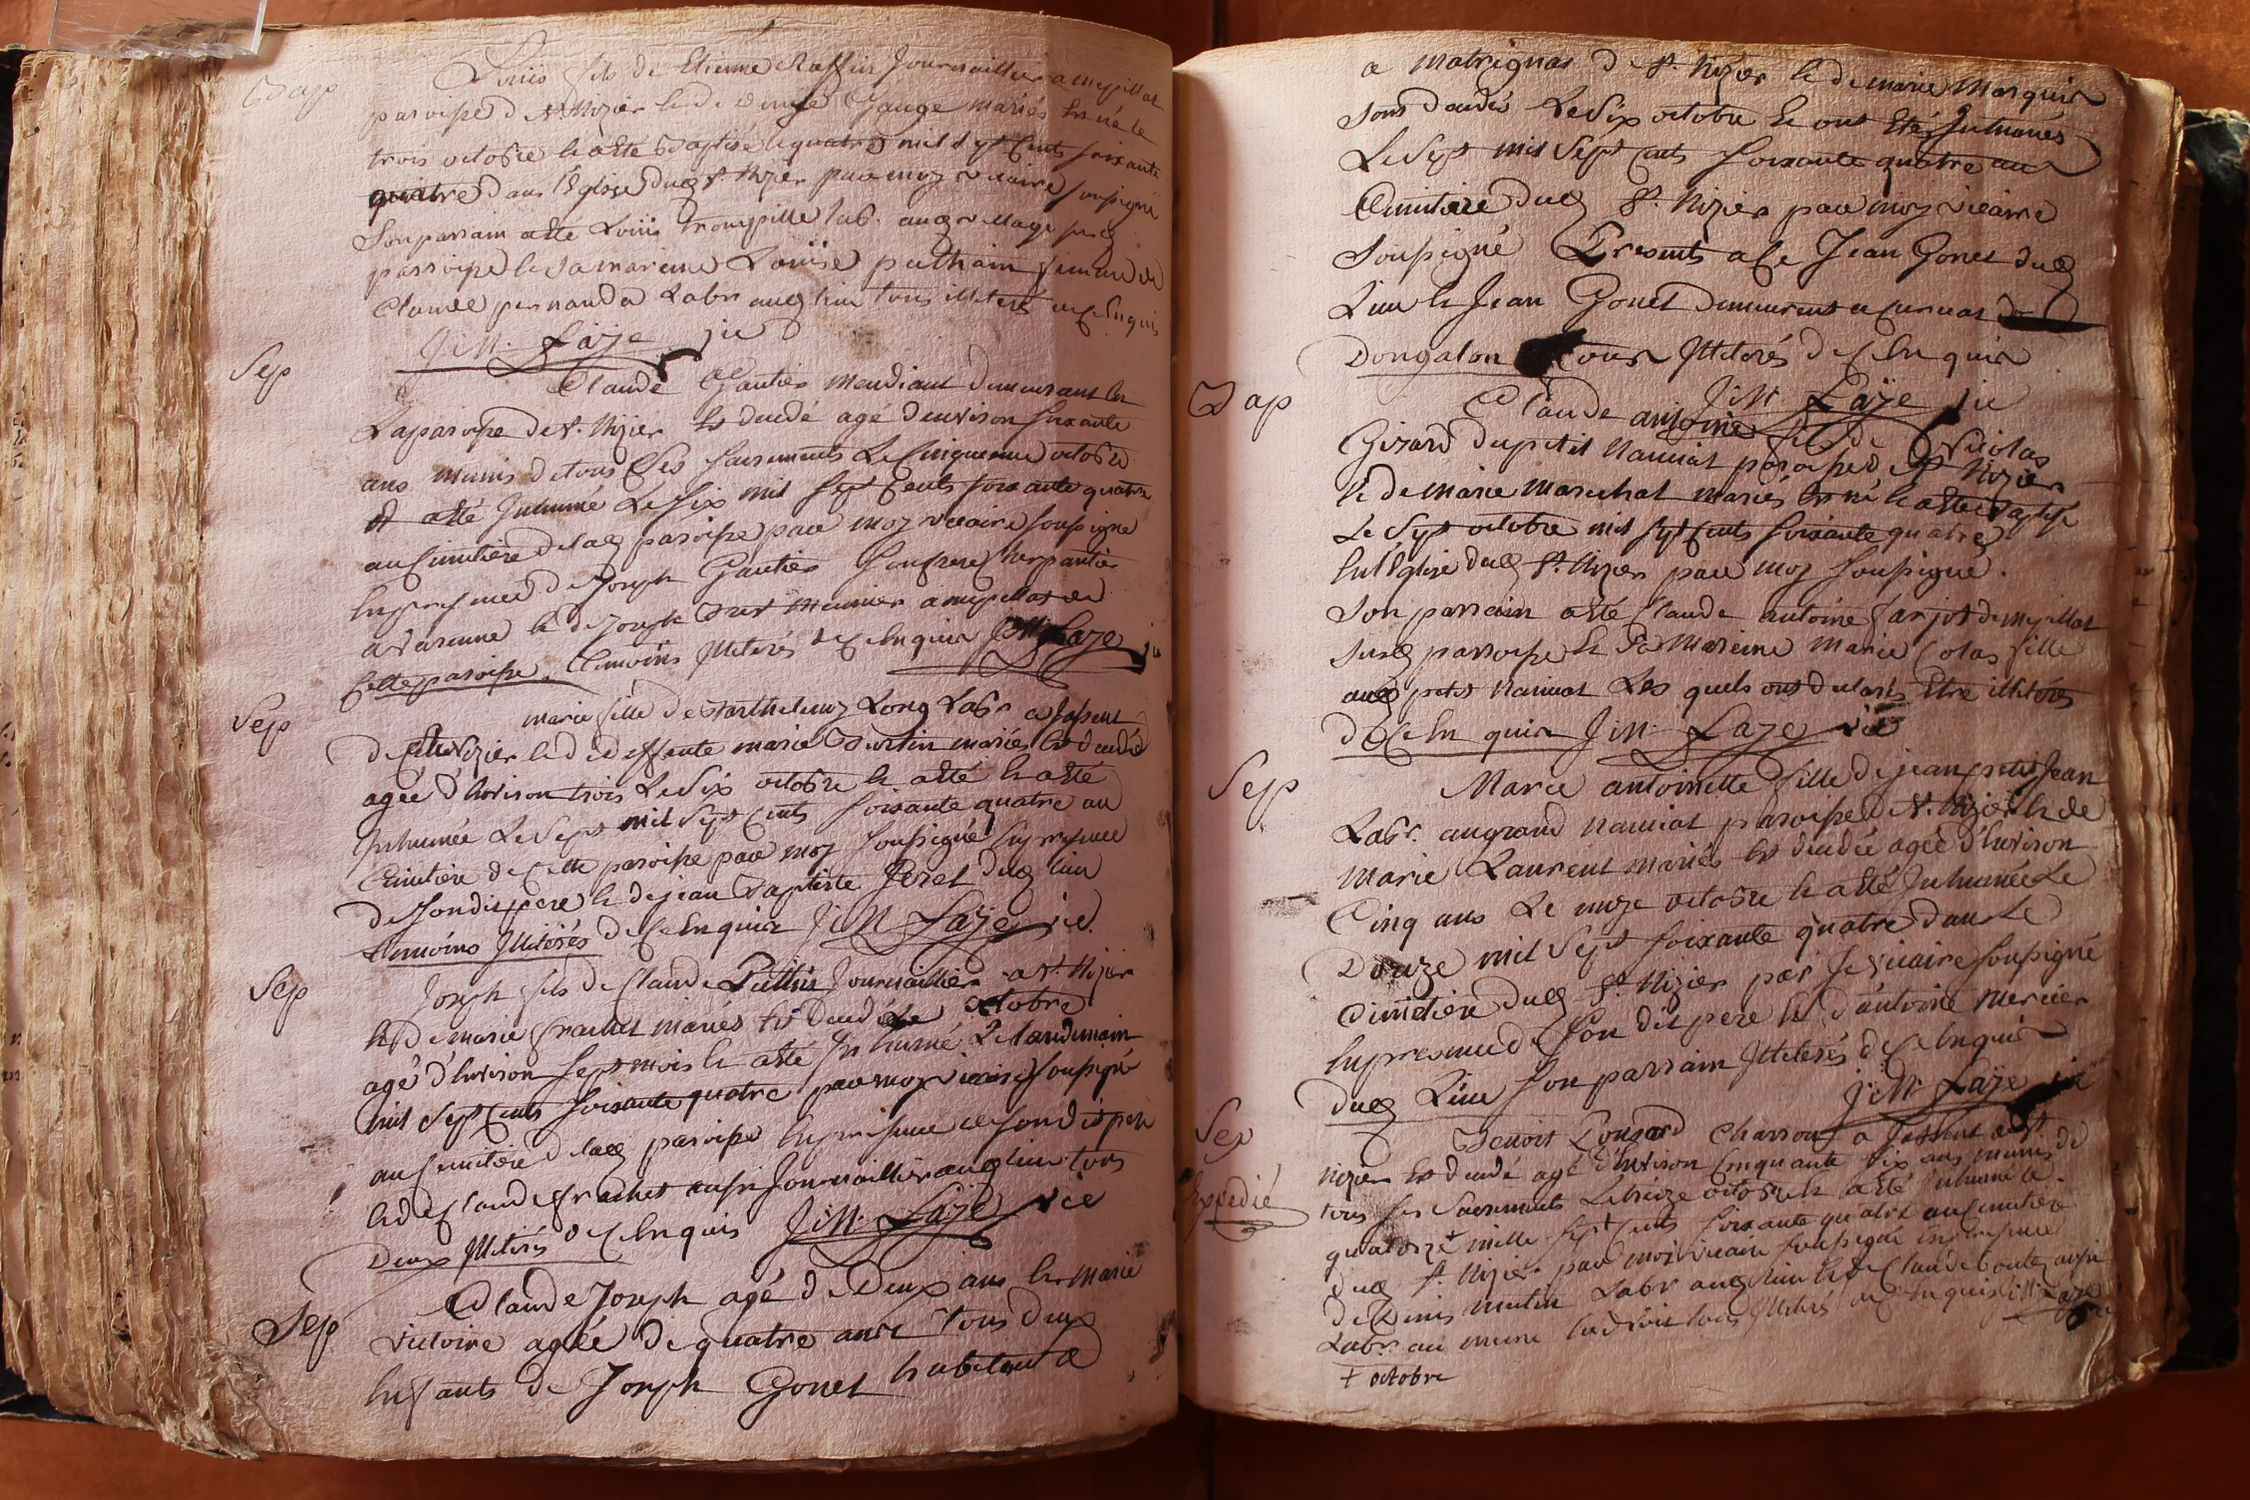 Bap
Louis fils de Etienne Raffin Journaillier a mepillat
paroisse de st. Nizier le de mariés est né le
trois octobre le a esté Baptisé le quatre mil sept Cents soixante
quatre dans l'Eglise dud st. Nizier par moy vicaire soussigné
Son parrain a esté Louis trompille lab. aud village sud
paroisse le sa mareine Louïse femme de
Claude Labr aud lieu tous illiterés de ce Enquis
J: M: Laÿe vic
Sep
Claude Gautier mendiant demeurant En
La paroisse de st. Nizier Est decedé agé d'environ soixante
ans munis de tous Ses sacrements Le Cinquieme octobre
et a esté Inhumé Le six mil sept Cents soixante quatre
au Cimitiere de lad paroisse par moy vicaire soussigné
En presence de Joseph Gautier Son frere Cherpantier
a varenne le de Joseph meunier a mepillat de
Cette paroisse. temoins Illiterés de ce Enquis J: M: Laÿe vic
Sep
marie fille de Barthelemy Long Labr a
de st Nizier le de deffunte marie mariés Est decedée
agée d'Environ trois Le six octobre le a esté le a esté
Inhumée Le sept mil sept Cents soixante quatre au
Cimitiere de Cette paroisse par moy soussigné En presence
de Son dit pere le de jean Baptiste Peret dud lieu
temoins Illiterés de ce Enquis J: M: Laÿe vic.
Sep
Joseph fils de Claude Journaillier a st. Nizier
le de marie frachet mariés Est decedé Le octobre
agé d'Environ sept mois le a esté Inhumé Le landemain
mil sept Cents soixante quatre par moy vicaire soussigné
au Cimitiere de lad paroisse En presence de son dit pere
le de Claude frachet aussi Journaillier aud lieu tous
Deux Illiterés de ce Enquis J: M: Laÿe vic
Sep
Claude Joseph agé de Deux ans le marie
victoire agée de quatre ans tous deux
Enfants de Joseph Gonet habitant
a Matrignat de st. Nizier le de marie Marquis
Sont decedés Le six octobre le ont Eté Inhumés
Le sept mil Sept Cents soixante quatre au
Cimitiere dud st. Nizier par moy vicaire
soussigné Presents a ce Jean Gonet dud
Lieu le Jean Gonet demeurent a
Dongalon tous Illiterés de ce Enquis
J: M: Laÿe vic
Bap
Claude antoine fils de Nicolas
Gizard du petit Naniat paroisse de st. Nizier
le de marie marechal mariés Est né le a esté Baptisé
Le sept octobre mil sept Cents soixante quatre
En l'Eglise dud st. Nizier par moy soussigné.
Son parrain a esté Claude antoine farjot de mepillat
susd parroisse le Sa Mareine Marie Colas fille
aud petit Naniat Les quels ont declarés Etre illiterés
de ce Enquis J: M: Laÿe vic
Sep
Marie antoinette fille de jean petit Jean
Labr. au grand Naniat paroisse de st. Nizier le de
Marie Laurent mariés Est decedée agée d'Environ
Cinq ans Le onze octobre le a esté Inhumée Le
Douze mil Sept soixante quatre dans Le
Cimetiere dud st. Nizier par Le vicaire soussigné
En presence de Son dit pere le d'antoine Mercier
dud Lieu son parrain Illiterés de ce Enquis
J: M: Laÿe vic
Sep
Expedié
Benoit Charron a st
Nizier Est decedé agé d'Environ Cinquante six ans munis de
tous ses Sacrements Le treize octobre le a esté Inhumé le
quatorze + mille sept Cents soixante quatre au Cimitiere
dud st. Nizier par moi vicaire soussigné En presence
de Denis Labr aud lieu le de Claude aussi
Labr. au meme tous Illiterés de ce Enquis J: M: Laÿe
+ octobre